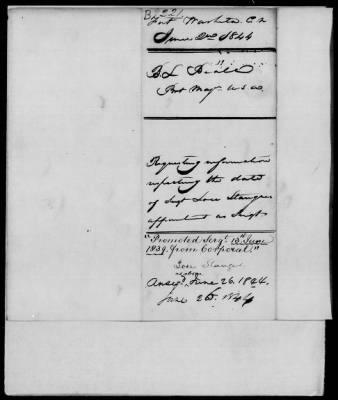 B 221
Fort Washita C. N
June 2nd 1844
B L Beall
Bvt Maj. U S A
Requesting information
respecting the date
of Sergt Levi
appointment as Sergt
"Promoted Sergt. 16th June
1839, from Corporal."
Answd. June 26. 1844.
June 26. 1844